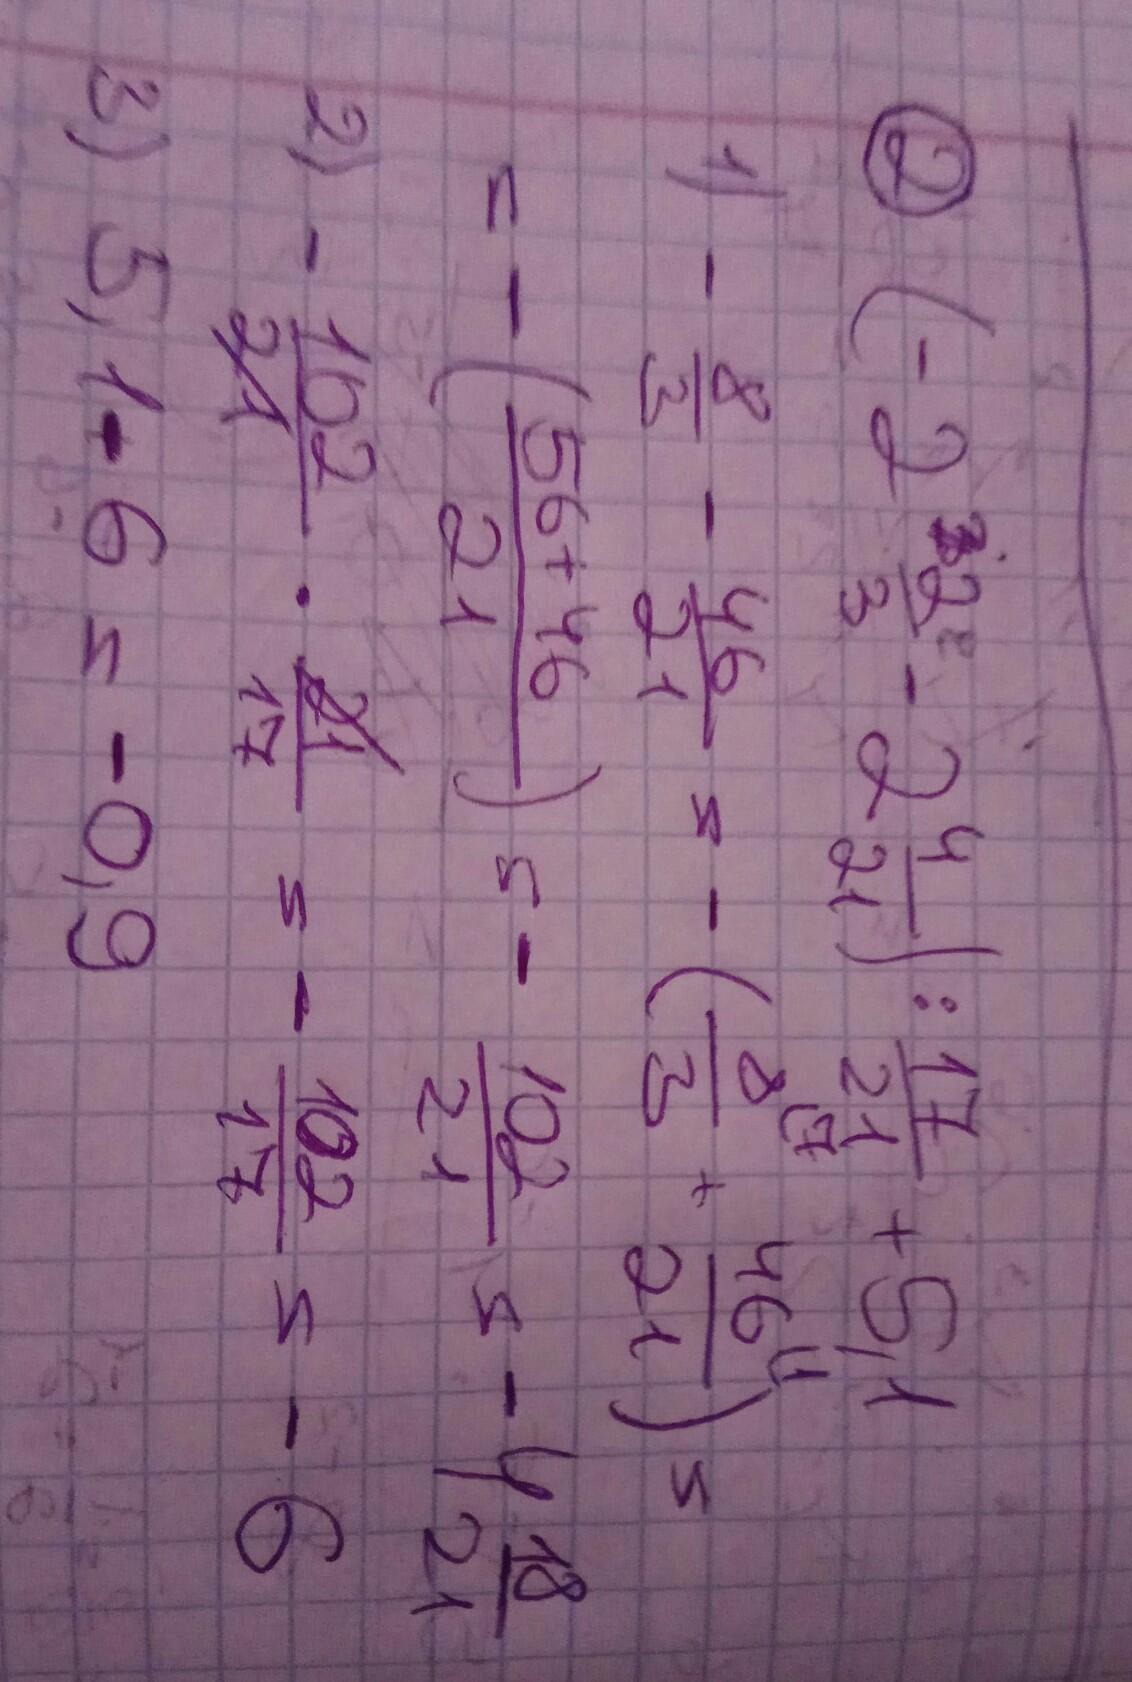 ② (-2 2/3 - 2 4/21) : 17/21 + 5,1
1) - 8/3 - 46/21 = - (8/3 + 46/21) =
= - (56+46/21) = - 102/21 = - 4 18/21
2) - 102/21 · 21/17 = - 102/17 = - 6
3) 5,1 - 6 = - 0,9